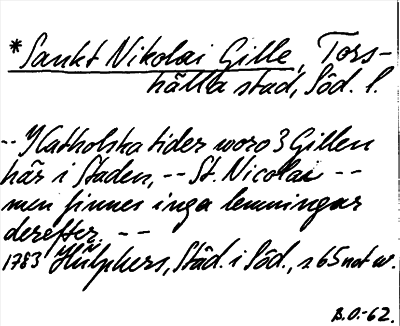 *Sankt Nikolai Gille, Tors-
hälla stad, Söd. l.
-- I Catholska tider woro 3 Gillen
här i Staden, -- St. Nicolai --
men finnes inga lemningar
derefter, --
1783 Hülphers, Städ. i Söd., s 65 not w.
B.O.-62.